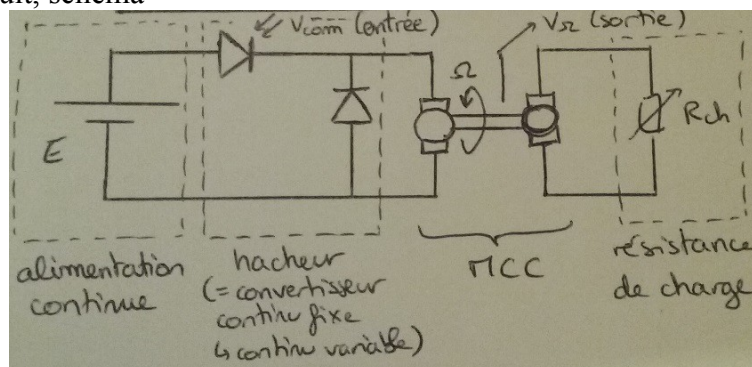 schéma
Vcom (entrée)
VΩ (sortie)
Ω
E
Rch
alimentation
continue
hacheur
(= convertisseur
continu fixe
↳ continu variable)
MCC
résistance
de charge